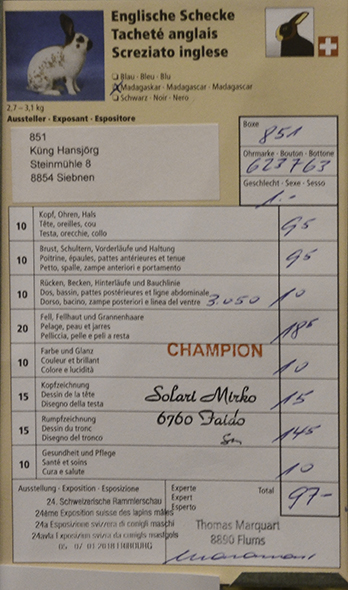 Englische Schecke
Tacheté anglais
Screziato inglese
Blau · Bleu · Blu
Madagaskar · Madagascar · Madagascar
Schwarz · Noir · Nero
2.7 – 3,1 kg
Aussteller · Exposant · Espositore
851
Küng Hansjörg
Steinmühle 8
8854 Siebnen
Boxe
851
Ohrmarke · Bouton · Bottone
623763
Geschlecht · Sexe · Sesso
1.-
10 Kopf, Ohren, Hals
Tête, oreilles, cou
Testa, orecchie, collo
95
10 Brust, Schultern, Vorderläufe und Haltung
Poitrine, épaules, pattes antérieures et tenue
Petto, spalle, zampe anteriori e portamento
95
10 Rücken, Becken, Hinterläufe und Bauchlinie
Dos, bassin, pattes postérieures et ligne abdominale
Dorso, bacino, zampe posteriori e linea del ventre
3.050 10
20 Fell, Fellhaut und Grannenhaare
Pelage, peau et jarres
Pelliccia, pelle e peli a resta
185
10 Farbe und Glanz
Couleur et brillant
Colore e lucidità
CHAMPION
10
15 Kopfzeichnung
Dessin de la tête
Disegno della testa
Solari Mirko
15
15 Rumpfzeichnung
Dessin du tronc
Disegno del tronco
6760 Faido
145
10 Gesundheit und Pflege
Santé et soins
Cura e salute
10
Ausstellung · Exposition · Esposizione
24. Schweizerische Rammlerschau
24ème Exposition suisse des lapins mâles
24a Esposizione svizzera di conigli maschi
Experte
Expert
Esperto
Total
97-
Thomas Marquart
8890 Flums